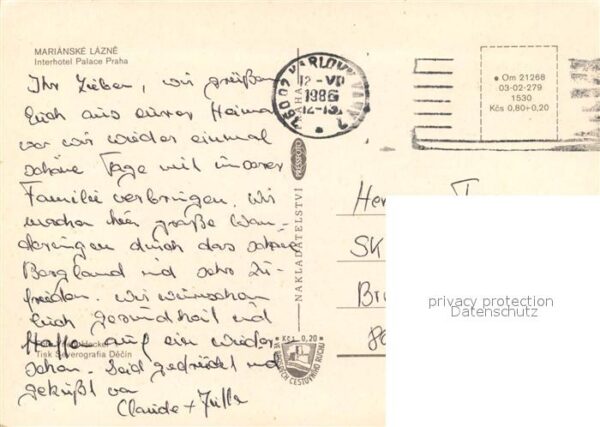 MARIÁNSKÉ LÁZNĚ
Interhotel Palace Praha
Ihr Lieben, wir grüßen
Euch aus eurer Heimat
wo wir wieder einmal
schöne Tage mit unserer
Familie verbringen. Wir
machen hier große Wan-
derungen durch das schöne
Bergland und sehr zu-
frieden. Wir wünschen
Euch Gesundheit und
Hoffe auf ein Wieder
sehen. Seid gedrückt und
geküßt von
Claude +
Tisk Severografia Děčín
36002 KARLOVY VARY 2
12.-VII
1986
12-13
PRAHA
PRESSFOTO
NAKLADATELSTVÍ
• Om 21268
03-02-279
1530
Kčs 0,80+0,20
Kčs 0,20
VE SLUŽBÁCH CESTOVNÍHO RUCHU
SK
privacy protection
Datenschutz